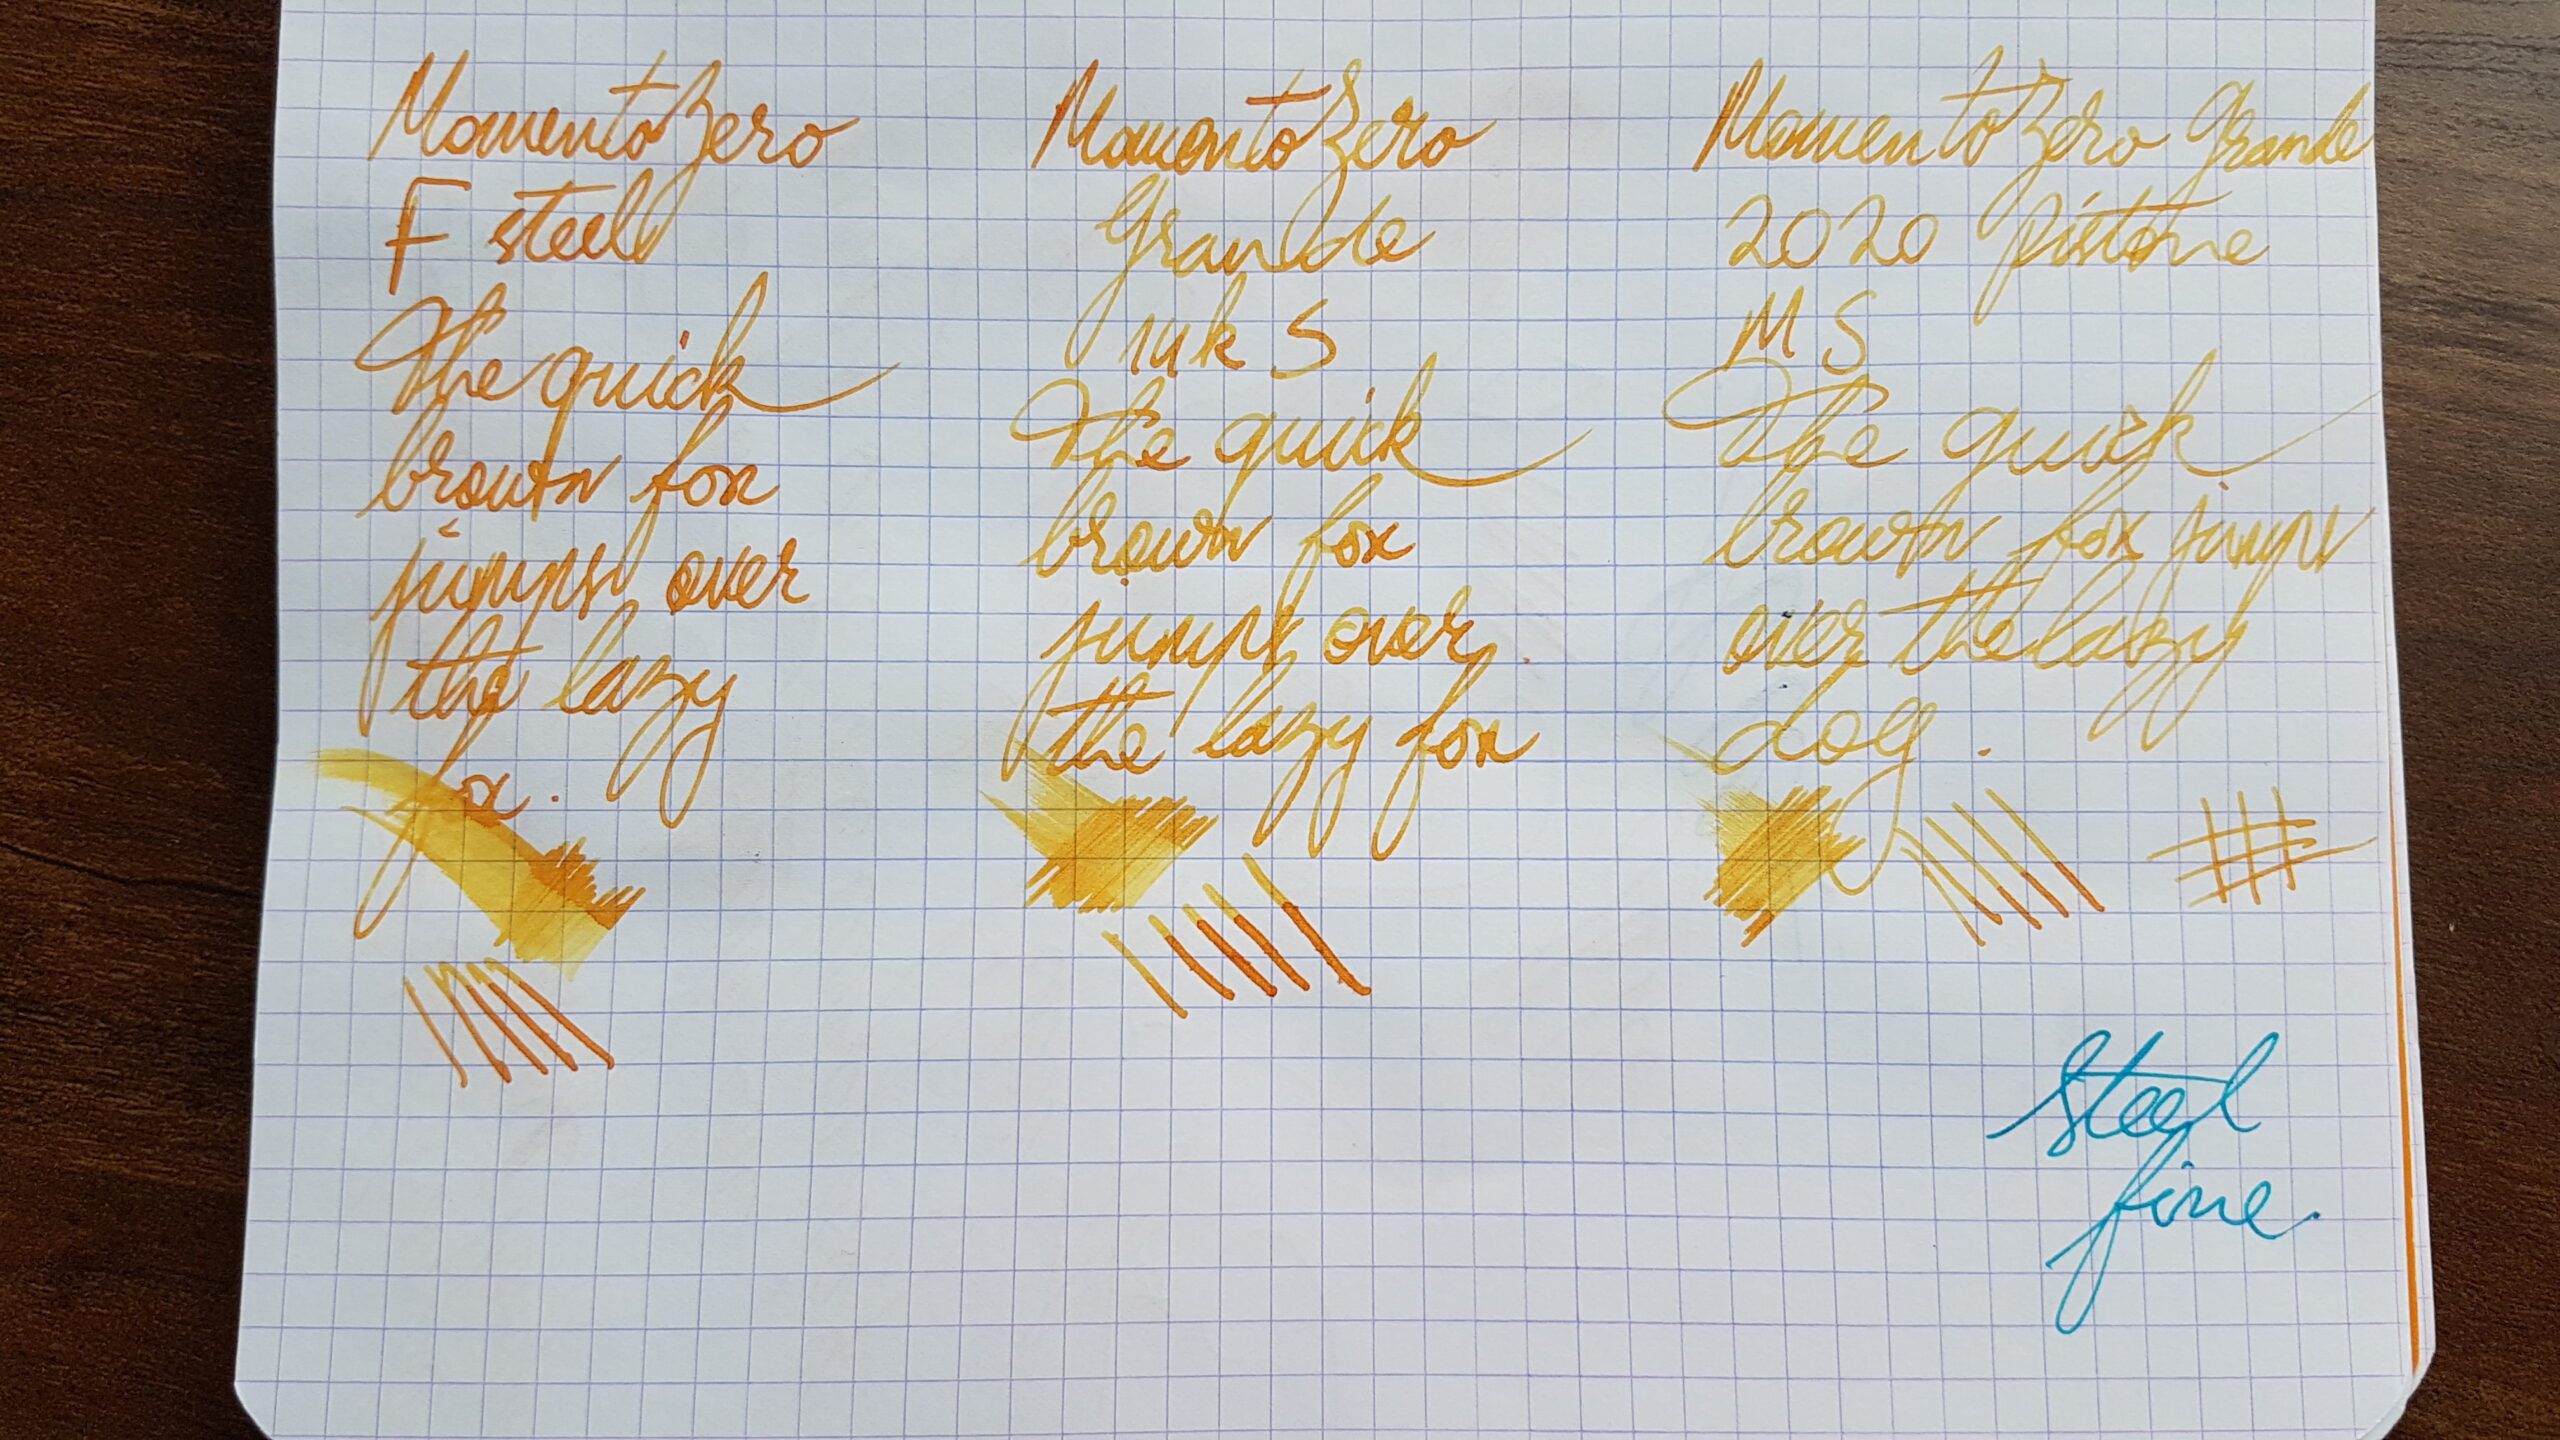 Momento Zero
F steel
The quick
brown fox
jumps over
the lazy
fox.
Momento Zero
Grande
nuk S
The quick
brown fox
jumps over
the lazy fox
Momento Zero Grande
2020 pistone
M S
The quick
brown fox jumps
over the lazy
dog.
Steel
fine.